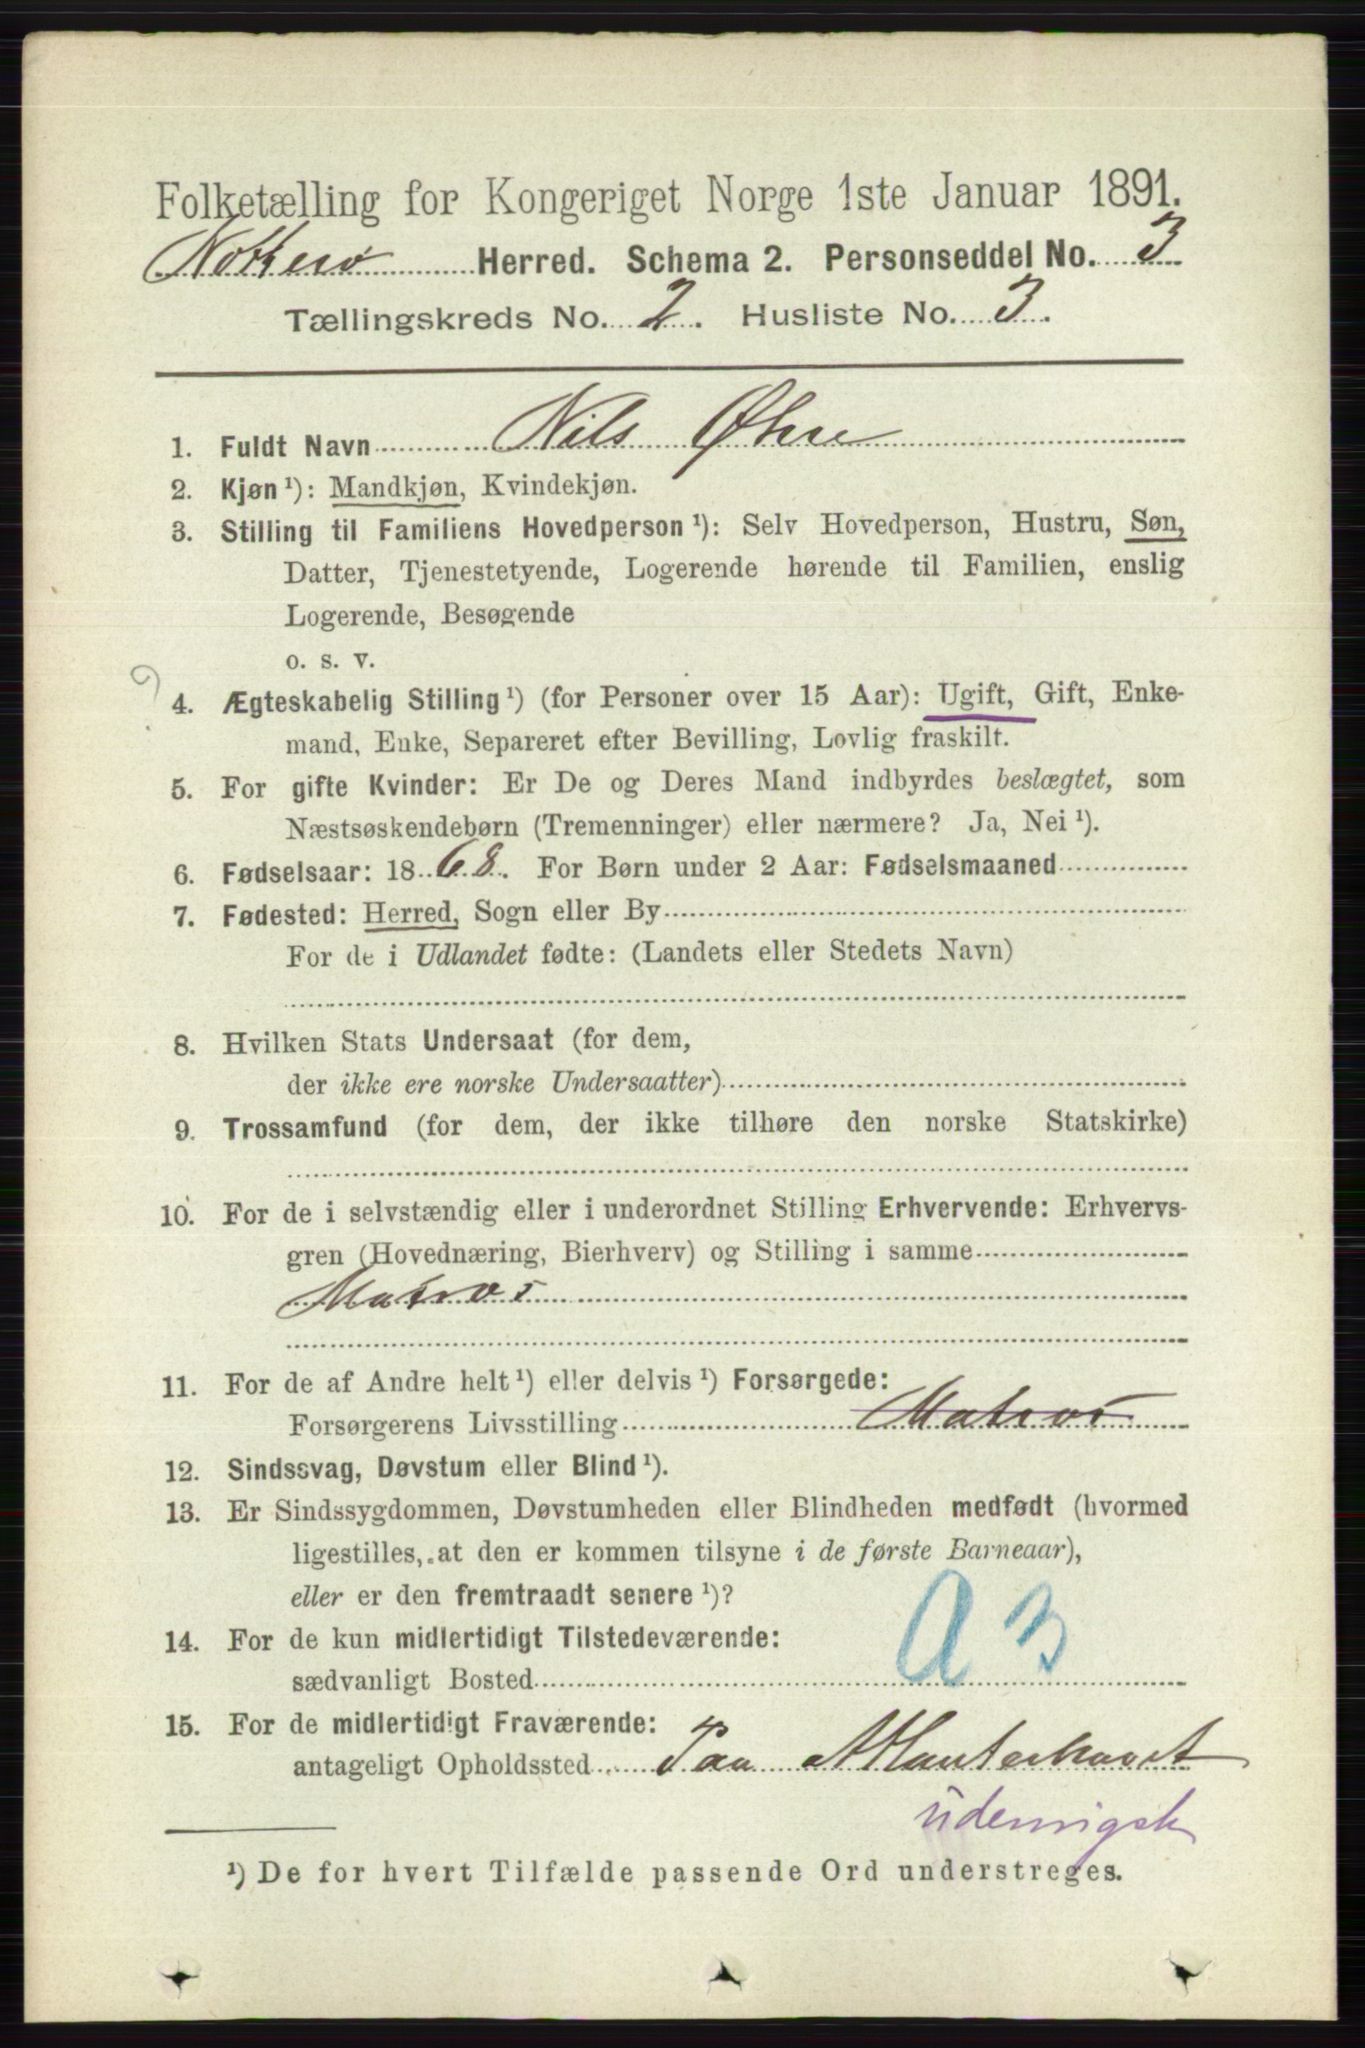 Folketælling for Kongeriget Norge 1ste Januar 1891.
Nøtterø Herred. Schema 2. Personseddel No. 3
Tællingskreds No. 2. Husliste No. 3.
1. Fuldt Navn Nils Øhre
2. Kjøn ¹): Mandkjøn, Kvindekjøn.
3. Stilling til Familiens Hovedperson ¹): Selv Hovedperson, Hustru, Søn,
Datter, Tjenestetyende, Logerende hørende til Familien, enslig
Logerende, Besøgende
o. s. v.
4. Ægteskabelig Stilling ¹) (for Personer over 15 Aar): Ugift, Gift, Enke-
mand, Enke, Separeret efter Bevilling, Lovlig fraskilt.
5. For gifte Kvinder: Er De og Deres Mand indbyrdes beslægtet, som
Næstsøskendebørn (Tremenninger) eller nærmere? Ja, Nei ¹).
6. Fødselsaar: 1868. For Børn under 2 Aar: Fødselsmaaned
7. Fødested: Herred, Sogn eller By
For de i Udlandet fødte: (Landets eller Stedets Navn)
8. Hvilken Stats Undersaat (for dem,
der ikke ere norske Undersaatter)
9. Trossamfund (for dem, der ikke tilhøre den norske Statskirke)
10. For de i selvstændig eller i underordnet Stilling Erhvervende: Erhvervs-
gren (Hovednæring, Bierhverv) og Stilling i samme
Matros
11. For de af Andre helt ¹) eller delvis ¹) Forsørgede:
Forsørgerens Livsstilling Matros
12. Sindssvag, Døvstum eller Blind ¹).
13. Er Sindssygdommen, Døvstumheden eller Blindheden medfødt (hvormed
ligestilles, at den er kommen tilsyne i de første Barneaar),
eller er den fremtraadt senere ¹)?
14. For de kun midlertidigt Tilstedeværende:
sædvanligt Bosted
A 3
15. For de midlertidigt Fraværende:
antageligt Opholdssted Paa Atlanterhavet
udenrigsk
¹) De for hvert Tilfælde passende Ord understreges.